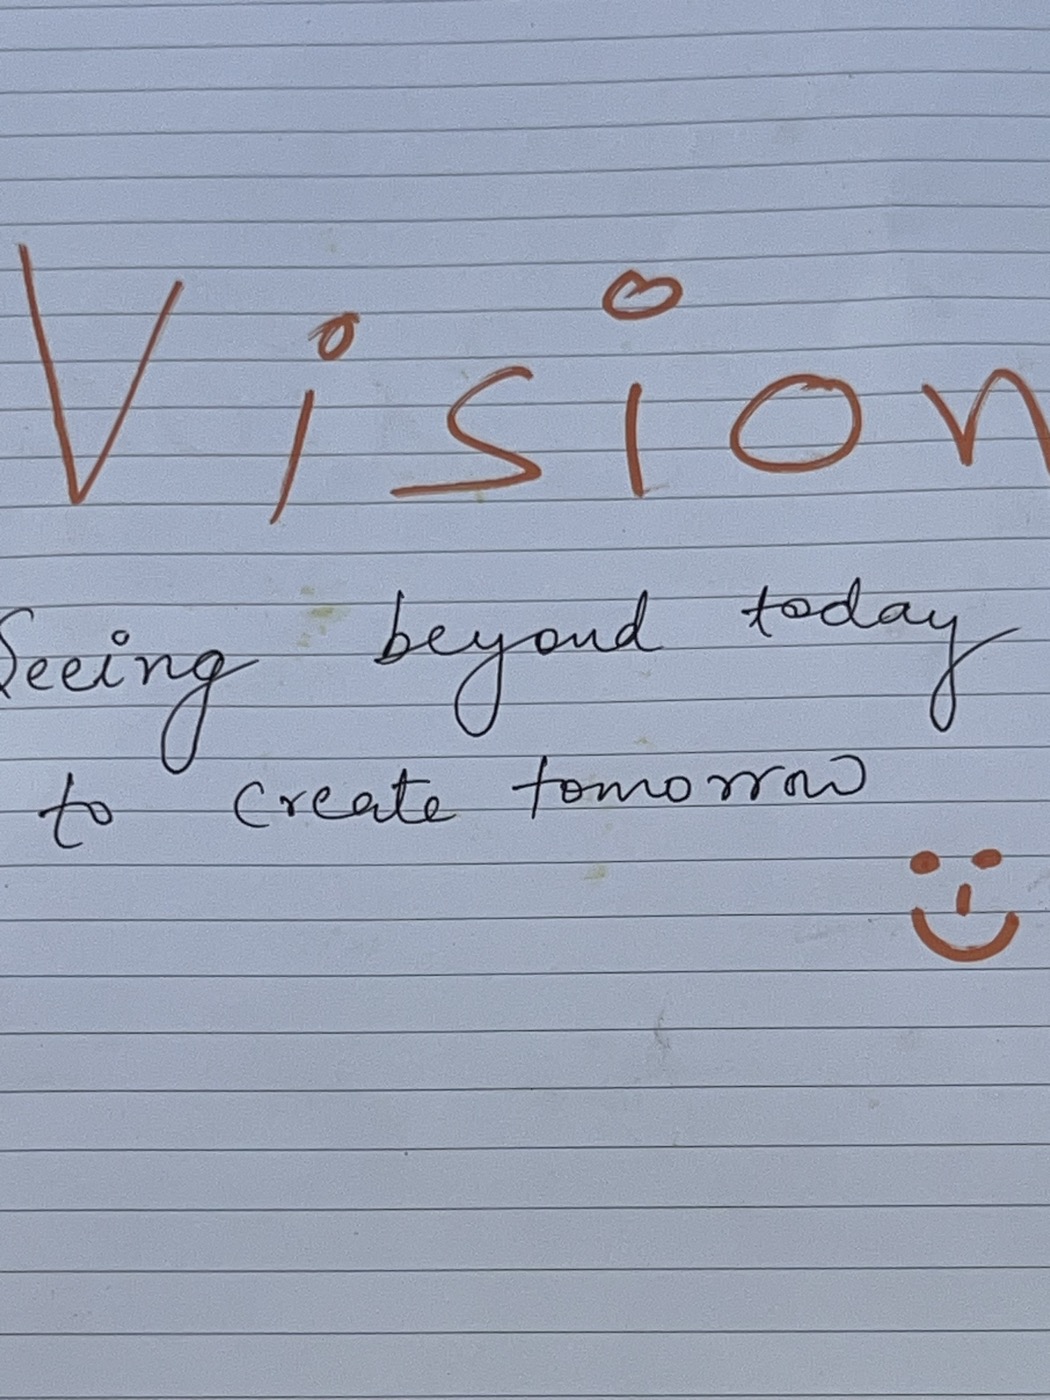 Vision
Seeing beyond today
to create tomorrow